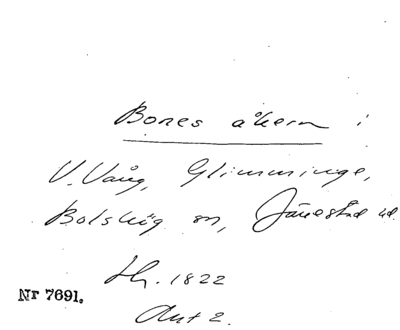 Bones åkern i
V. Vång, Glimminge,
Bolshög sn, Järrestad hd.
Hg. 1822
Nr 7691.
Akt 2.